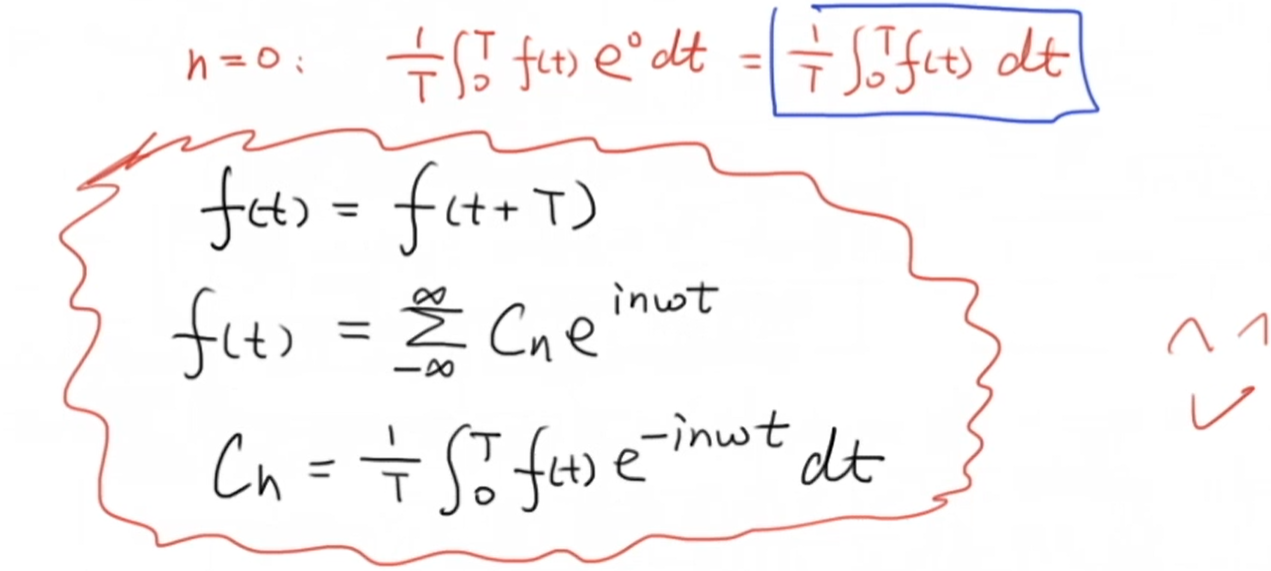 n=0: 1/T ∫₀ᵀ f(t) e⁰ dt = 1/T ∫₀ᵀ f(t) dt
f(t) = f(t+T)
f(t) = ∑_{-∞}^{∞} Cₙ e^{inωt}
Cₙ = 1/T ∫₀ᵀ f(t) e^{-inωt} dt